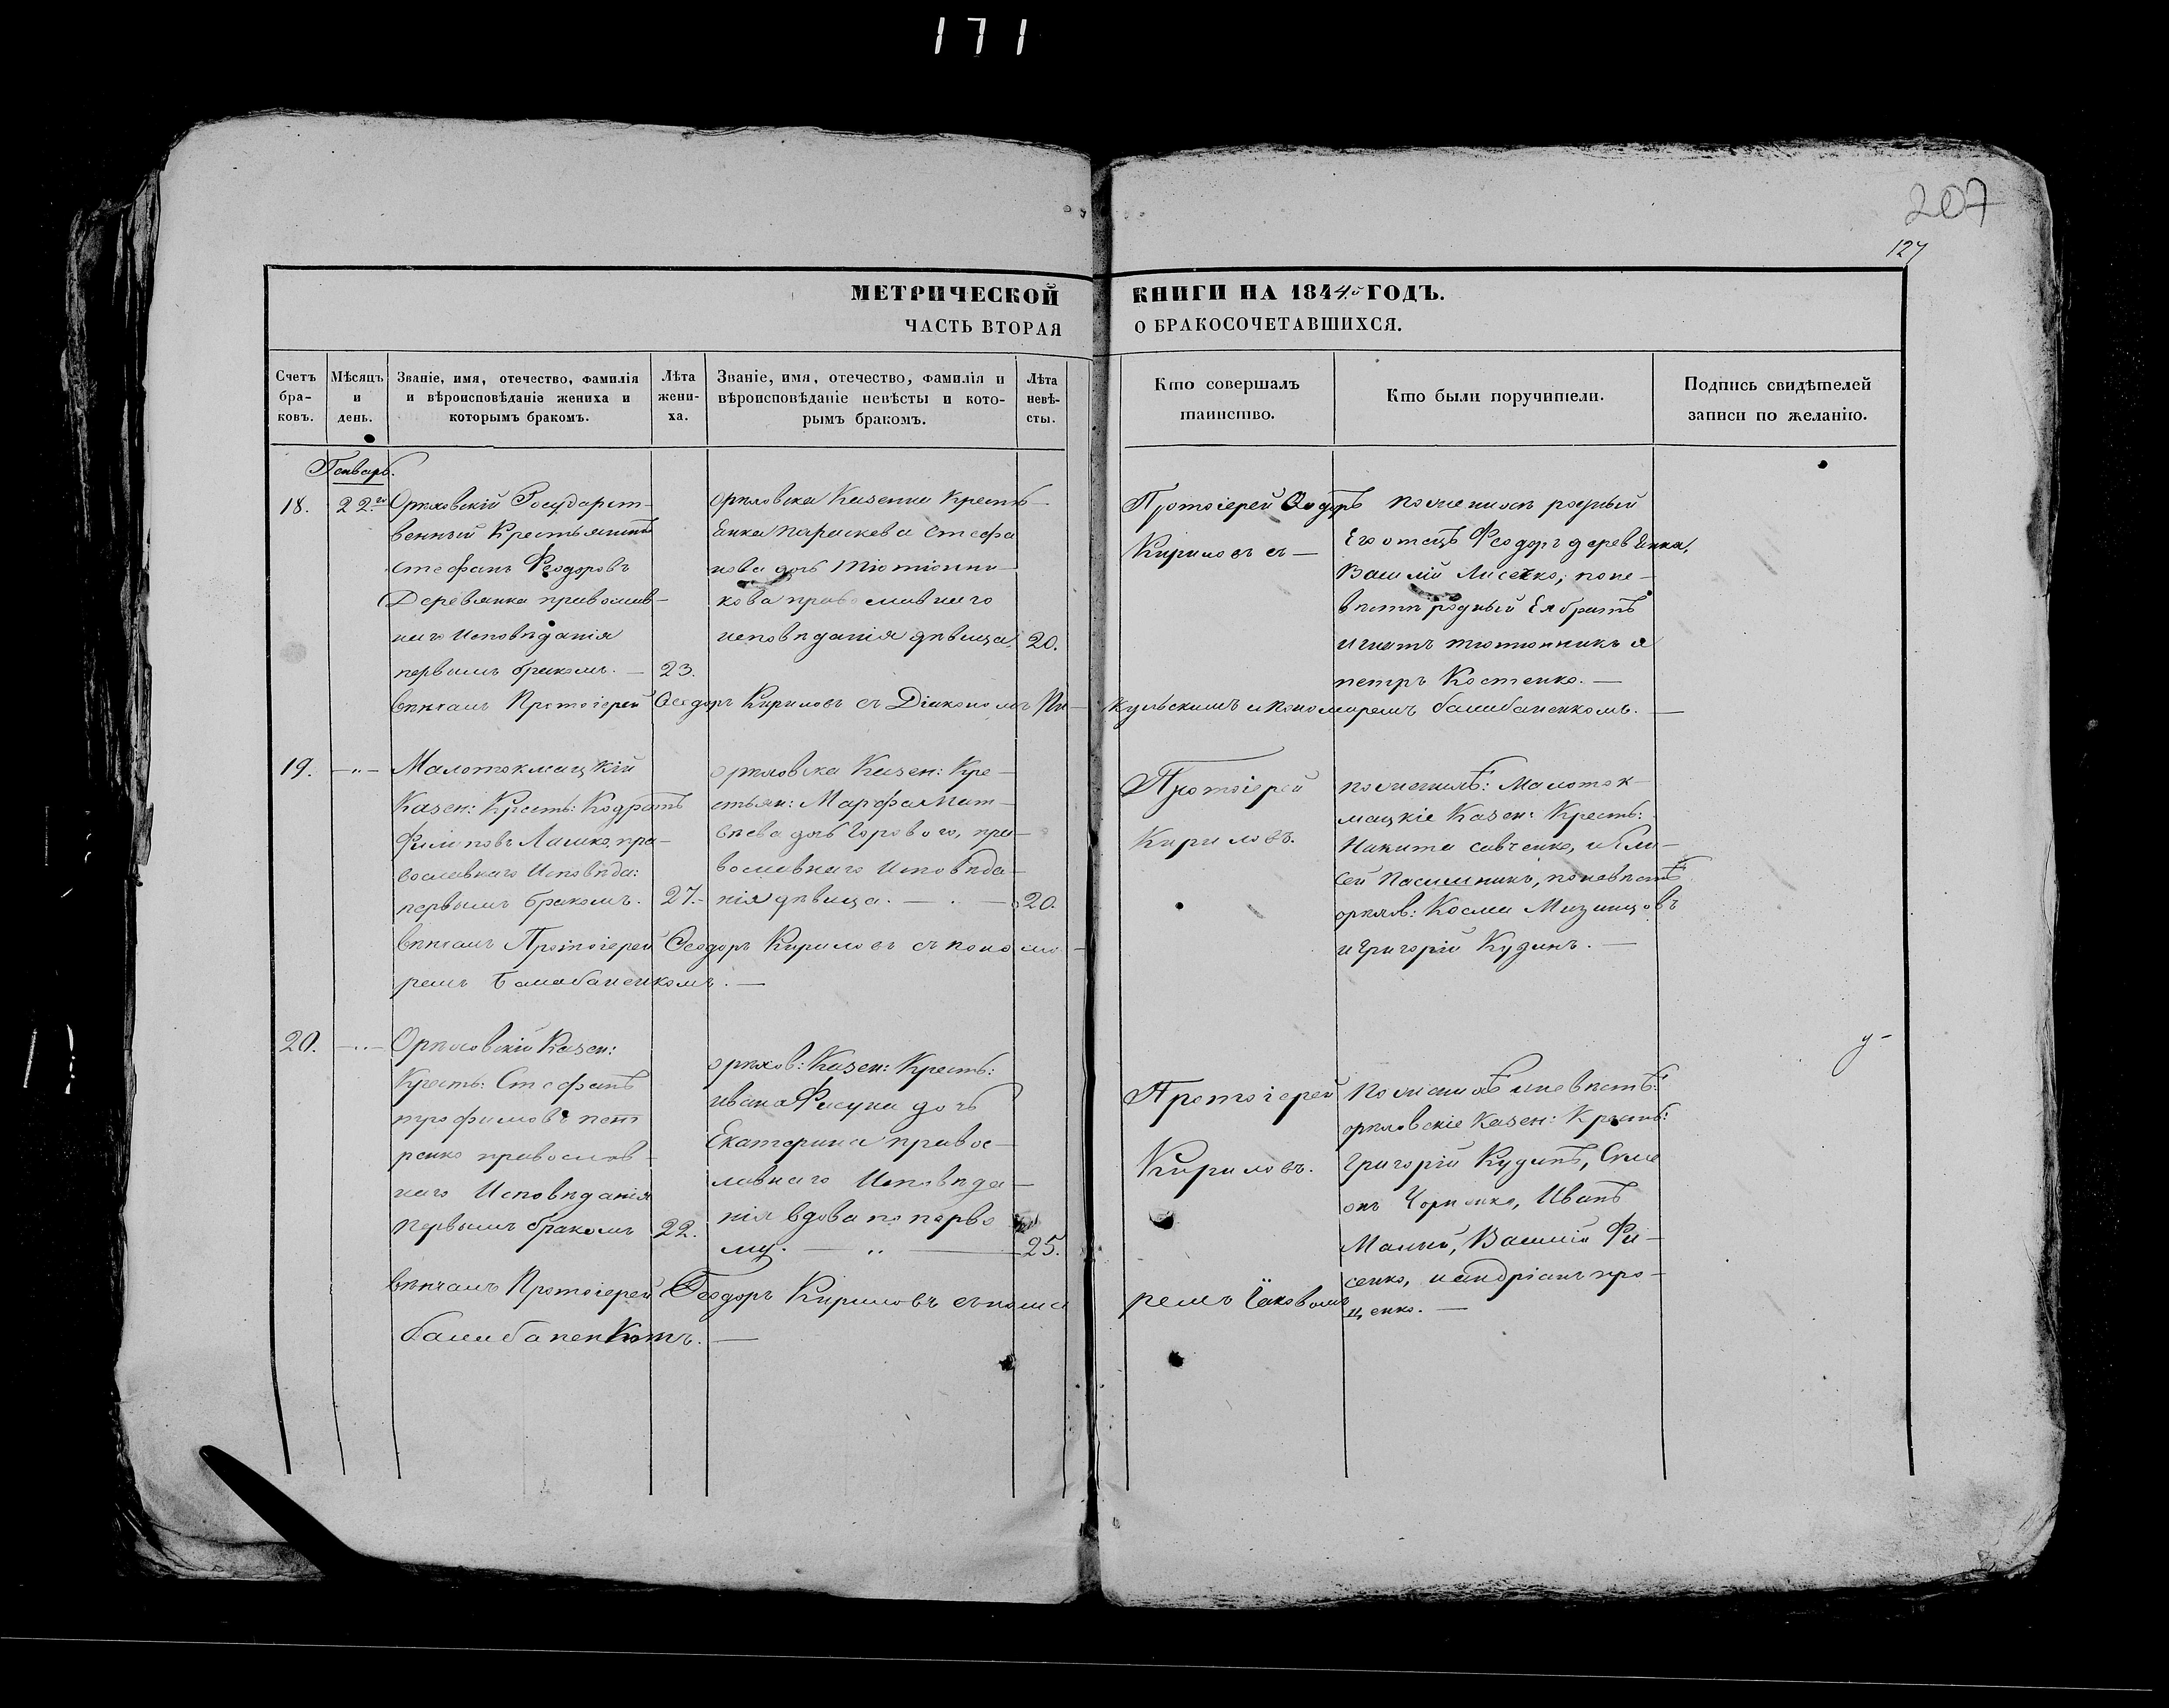 171
207
127
МЕТРИЧЕСКОЙ КНИГИ НА 1844й ГОДЪ.
ЧАСТЬ ВТОРАЯ О БРАКОСОЧЕТАВШИХСЯ.
Счетъ бра- ковъ.
Мѣсяцъ и день.
Званіе, имя, отечество, фамилія и вѣроисповѣданіе жениха и которымъ бракомъ.
Лѣта жени- ха.
Званіе, имя, отечество, фамилія и вѣроисповѣданіе невѣсты и кото- рымъ бракомъ.
Лѣта невѣ- сты.
Кто совершалъ таинство.
Кто были поручители.
Подпись свидѣтелей записи по желанію.
Генварь.
18.
22го
Орѣховскій Государст-
венный Крестьянинъ
Стефанъ Феодоровъ
Деревянка православ-
наго Исповѣданія
первымъ бракомъ. —
23.
орѣховска Казенна Кресть-
янка Параскева Стефа
нова дочь Тютюнни-
кова православнаго
исповѣданія дѣвица
20.
Протоіерей Ѳеодоръ
Кириловъ съ —
по женихѣ родный
Его отецъ Феодоръ деревянка,
Василій Лисенко; по не-
вѣстѣ родный Ея братъ
игнатъ тютюнникъ и
петръ Костенко. —
вѣнчалъ Протоіерей Ѳеодоръ Кириловъ съ Діакономъ Пи-кульскимъ и пономаремъ балабаненкомъ. —
19.
—"—
Малотокмацкій
Казен: Кресть: Кодратъ
Филиповъ Лашко, пра-
вославнаго Исповѣда:
первымъ бракомъ.
27.-
орѣховска Казен: Кре-
стьян: Марфа Мат-
вѣева дочь Горового, пра-
вославнаго Исповѣда-
нія дѣвица. —
20.
Протоіерей
Кириловъ.
по женихѣ: Малоток-
мацкіе Казен: Кресть:
Никита савченко, и Ели-
сей Пасишникъ, по невѣстѣ
орѣхов: Косма Мизинцовъ
и Григорій Кудинъ. —
вѣнчалъ Протоіерей Ѳеодоръ Кириловъ съ понома-
ремъ балабаненкомъ. —
20.
—"—
Орѣховскій Казен:
Кресть: Стефанъ
трофимовъ пет
ренко православ-
наго Исповѣданія
первымъ бракомъ
22.
орѣхов: Казен: Кресть:
ивана Фисуна дочь
Екатерина правос-
лавнаго Исповѣда-
нія вдова по перво
му. — " —
25.
Протоіерей
Кириловъ.
По женихѣ и невѣстѣ:
орѣховскіе Казен: Кресть:
Григорій Кудинъ, Симе
онъ Чорненко, Иванъ
Малый, Василій Фи-
сенко, и андріанъ про-
ценко. —
вѣнчалъ Протоіерей Ѳеодоръ Кириловъ съ понома ремъ Іаковомъ
балабаненкомъ. —